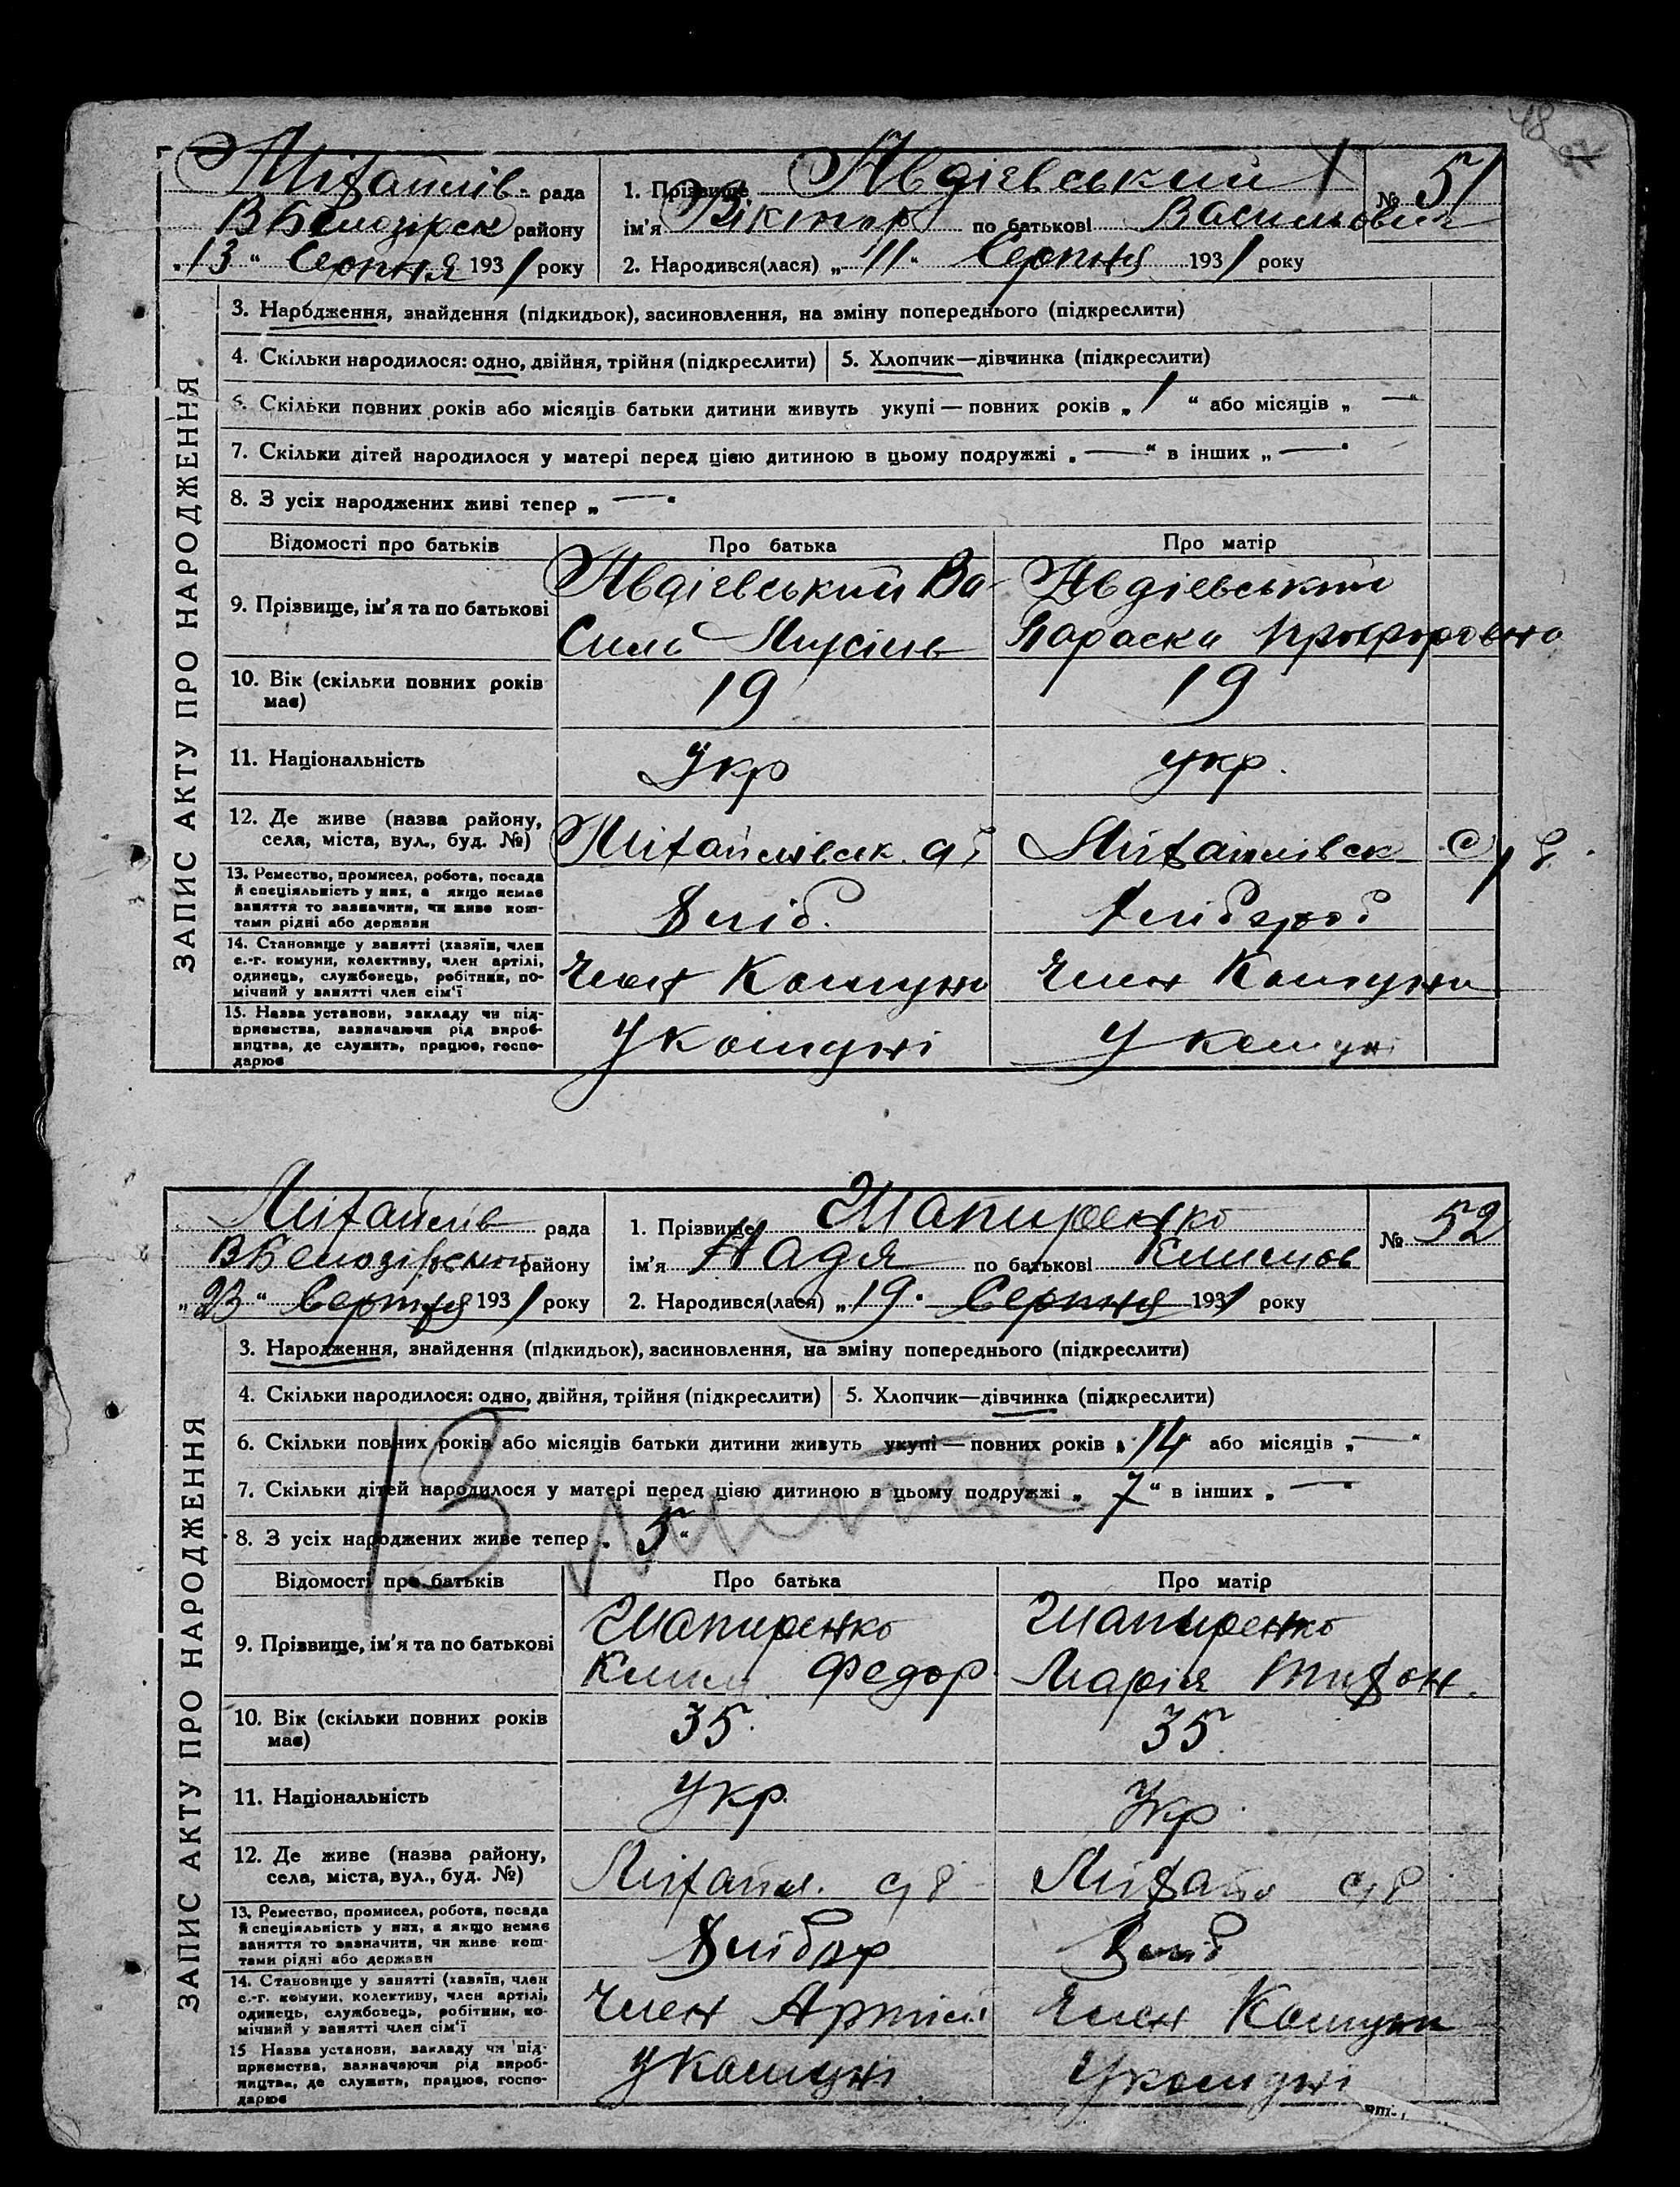 48
Міхайлів рада
В Білозірск району
„13“ Серпня 1931 року
1. Прізвище Авдієвський
ім'я Віктор по батькові Васильович
№ 51
2. Народився(лася) „11“ Серпня 1931 року
ЗАПИС АКТУ ПРО НАРОДЖЕННЯ
3. Народження, знайдення (підкидьок), засиновлення, на зміну попереднього (підкреслити)
4. Скільки народилося: одно, двійня, трійня (підкреслити) 5. Хлопчик—дівчинка (підкреслити)
6. Скільки повних років або місяців батьки дитини живуть укупі — повних років „1“ або місяців „—“
7. Скільки дітей народилося у матері перед цією дитиною в цьому подружжі „—“ в інших „—“
8. З усіх народжених живі тепер „—“
Відомості про батьків Про батька Про матір
9. Прізвище, ім'я та по батькові
Авдієвський Ва-
силь Мусієв
Авдієвський
Параска Прохоровна
10. Вік (скільки повних років має) 19 19
11. Національність Укр укр.
12. Де живе (назва району,
села, міста, вул., буд. №) Міхайлівск. с/г Міхайлівск с/г.
13. Ремество, промисел, робота, посада
й спеціяльність у них, а якщо немає
заняття то зазначити, чи живе кош-
тами рідні або держави
Хліб. Хлібороб
14. Становище у занятті (хазяїн, член
с.-г. комуни, колективу, член артілі,
одинець, службовець, робітник, по-
мічний у занятті член сім'ї
Член Комуни Член Комуни
15. Назва установи, закладу чи під-
приємства, зазначаючи рід вироб-
ництва, де служить, працює, госпо-
дарює
У комуні У комуні
Міхайлів рада
В Білозірський району
„23“ Серпня 1931 року
1. Прізвище Шапиренко
ім'я Надя по батькові Климов
№ 52
2. Народився(лася) „19“ Серпня 1931 року
ЗАПИС АКТУ ПРО НАРОДЖЕННЯ
3. Народження, знайдення (підкидьок), засиновлення, на зміну попереднього (підкреслити)
4. Скільки народилося: одно, двійня, трійня (підкреслити) 5. Хлопчик—дівчинка (підкреслити)
6. Скільки повних років або місяців батьки дитини живуть укупі — повних років „14“ або місяців „—“
7. Скільки дітей народилося у матері перед цією дитиною в цьому подружжі „7“ в інших „—“
8. З усіх народжених живе тепер „5“
Відомості про батьків Про батька Про матір
9. Прізвище, ім'я та по батькові
Шапиренко
Клим Федор.
Шапиренко
Марія Тихон.
10. Вік (скільки повних років має) 35. 35.
11. Національність Укр. Укр.
12. Де живе (назва району,
села, міста, вул., буд. №) Міхайл. с/г Міхайл с/г
13. Ремество, промисел, робота, посада
й спеціяльність у них, а якщо немає
заняття то зазначити, чи живе кош-
тами рідні або держави
Хлібор Хліб
14. Становище у занятті (хазяїн, член
с.-г. комуни, колективу, член артілі,
одинець, службовець, робітник, по-
мічний у занятті член сім'ї
Член Артілі Член Комуни
15 Назва установи, закладу чи під-
приємства, зазначаючи рід вироб-
ництва, де служить, працює, госпо-
дарює
У комуні У комуні